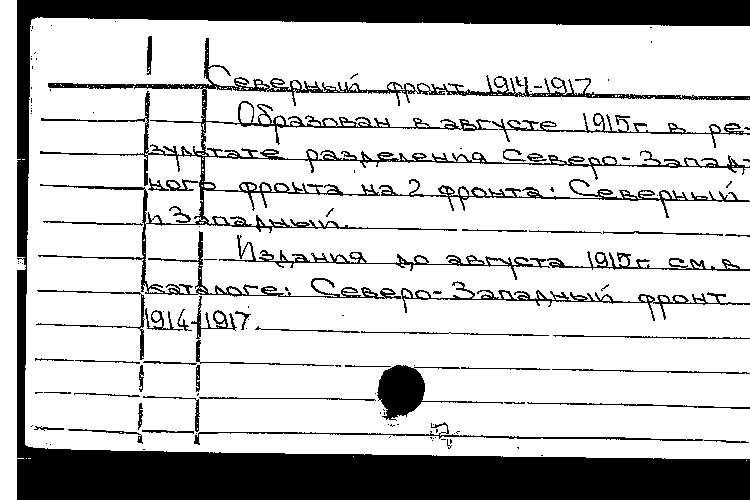 Северный фронт 1914-1917
Образован в августе 1915г. в ре-
зультате разделения Северо-Запад-
ного фронта на 2 фронта: Северный
и Западный.
Издания до августа 1915г. см. в
каталоге: Северо-Западный фронт
1914-1917.